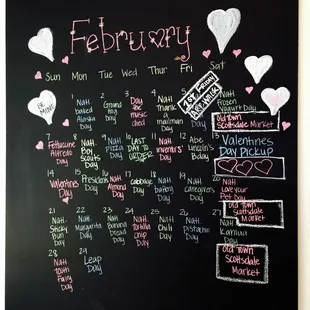 February
Sun Mon Tue Wed Thur Fri Sat
BE
MINE
1
Natl
baked
Alaska
Day
2
Ground
hog
Day
3
Day
the
music
died
4
Natl
Thank
a
mailman
Day
5
1st Friday
Art Walk
6
Natl
Frozen
Yogurt Day
Old Town
Scottsdale
Market
7
Fettuccine
Alfredo
Day
8
Natl
Boy
Scouts
Day
9
Natl
pizza
Day
10
LAST
DAY TO
ORDER
11
Natl
inventors
Day
12
Abe
Lincoln's
Bday
13
Valentines
Day Pickup
14
Valentines
Day
15
Presidents
Day
16
Natl
Almond
Day
17
Cabbage
Day
18
Natl
battery
Day
19
Natl
caregivers
Day
20
Natl
love your
Pet Day
Old Town
Scottsdale
Market
21
Natl
Sticky
Bun
Day
22
Natl
Margarita
Day
23
Natl
Banana
Bread
Day
24
Natl
Tortilla
Chip
Day
25
Natl
Chili
Day
26
Natl
pistachio
Day
27
Natl
Kahlua
Day
Old Town
Scottsdale
Market
28
Natl
tooth
Fairy
Day
29
Leap
Day